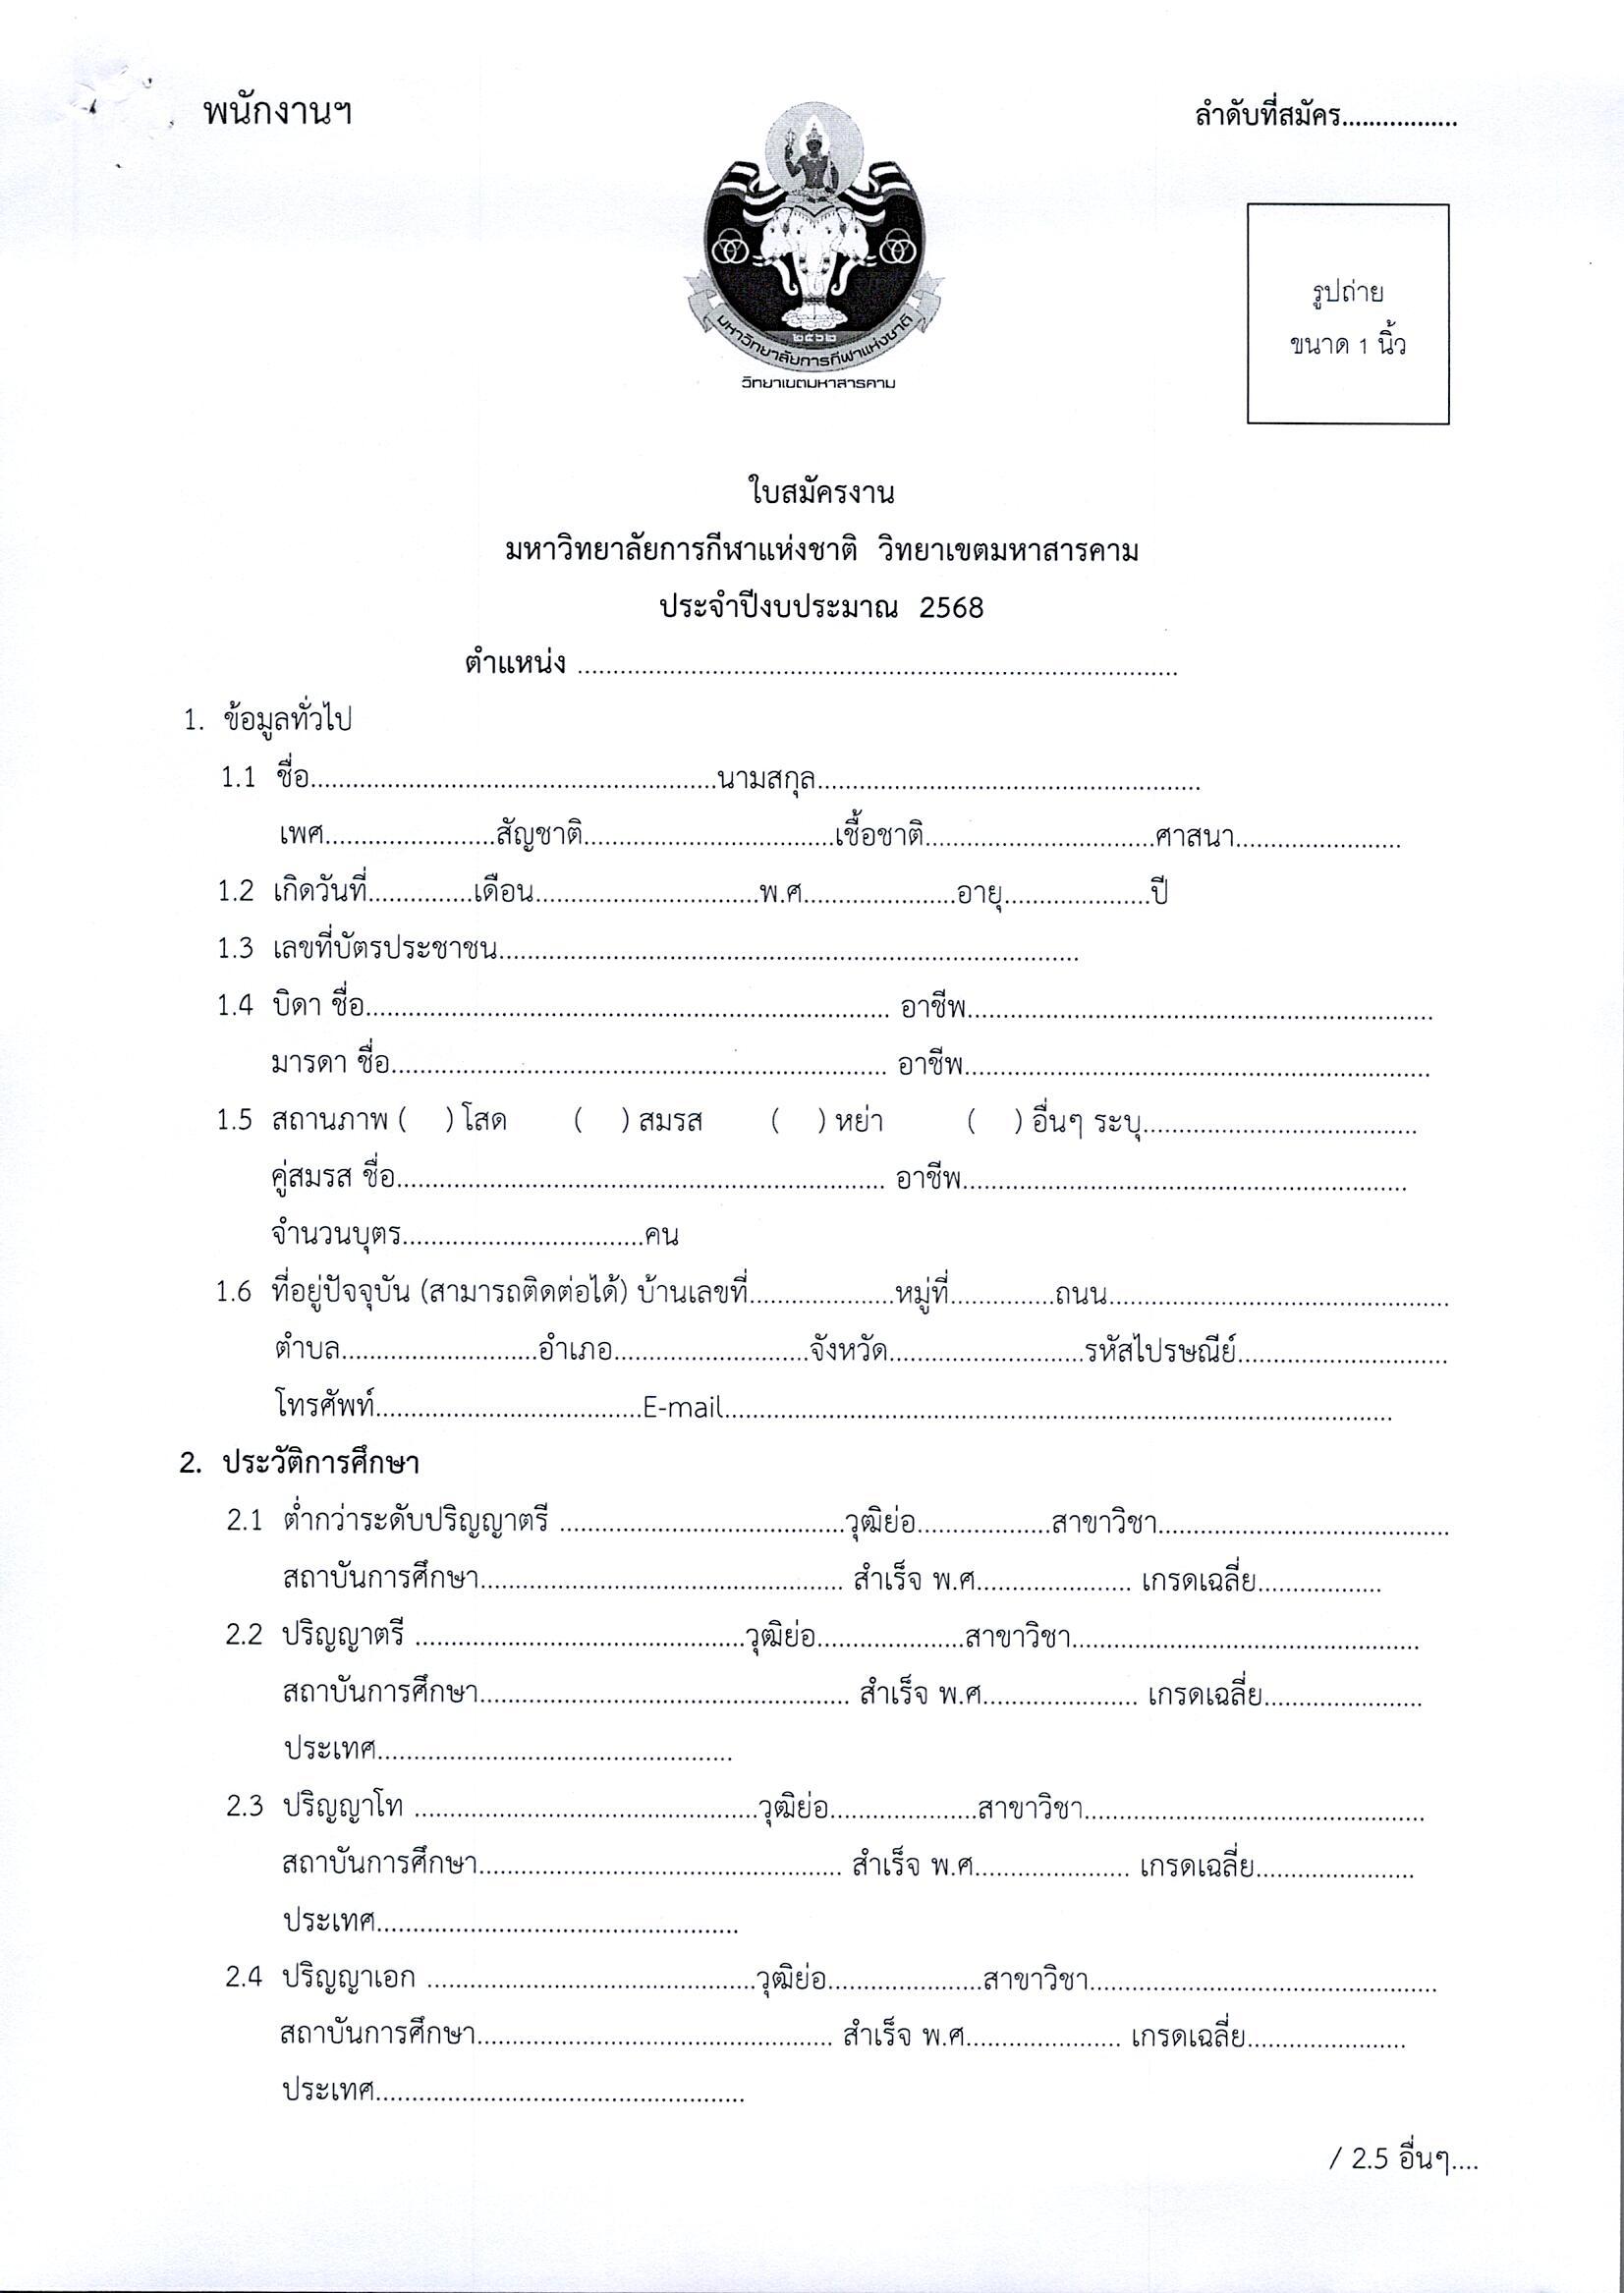 พนักงานฯ
ลำดับที่สมัคร................
มหาวิทยาลัยการกีฬาแห่งชาติ
๒๕๖๒
วิทยาเขตมหาสารคาม
รูปถ่าย
ขนาด 1 นิ้ว
ใบสมัครงาน
มหาวิทยาลัยการกีฬาแห่งชาติ วิทยาเขตมหาสารคาม
ประจำปีงบประมาณ 2568
ตำแหน่ง ................................................................
1. ข้อมูลทั่วไป
1.1 ชื่อ................................................นามสกุล................................................
เพศ....................สัญชาติ..............................เชื้อชาติ............................ศาสนา....................
1.2 เกิดวันที่.............เดือน............................พ.ศ...................อายุ..................ปี
1.3 เลขที่บัตรประชาชน................................................................
1.4 บิดา ชื่อ................................................................ อาชีพ........................................................
มารดา ชื่อ............................................................ อาชีพ........................................................
1.5 สถานภาพ ( ) โสด ( ) สมรส ( ) หย่า ( ) อื่นๆ ระบุ................................
คู่สมรส ชื่อ............................................................ อาชีพ......................................................
จำนวนบุตร..............................คน
1.6 ที่อยู่ปัจจุบัน (สามารถติดต่อได้) บ้านเลขที่..................หมู่ที่.............ถนน..........................................
ตำบล........................อำเภอ........................จังหวัด........................รหัสไปรษณีย์..........................
โทรศัพท์................................E-mail................................................................................
2. ประวัติการศึกษา
2.1 ต่ำกว่าระดับปริญญาตรี ...................................วุฒิย่อ................สาขาวิชา....................................
สถาบันการศึกษา............................................ สำเร็จ พ.ศ................... เกรดเฉลี่ย...............
2.2 ปริญญาตรี ........................................วุฒิย่อ..................สาขาวิชา..........................................
สถาบันการศึกษา............................................. สำเร็จ พ.ศ................... เกรดเฉลี่ย...................
ประเทศ............................................
2.3 ปริญญาโท ..........................................วุฒิย่อ..................สาขาวิชา..........................................
สถาบันการศึกษา............................................ สำเร็จ พ.ศ................... เกรดเฉลี่ย...................
ประเทศ............................................
2.4 ปริญญาเอก ........................................วุฒิย่อ...................สาขาวิชา..........................................
สถาบันการศึกษา........................................... สำเร็จ พ.ศ................... เกรดเฉลี่ย...................
ประเทศ.............................................
/ 2.5 อื่นๆ....